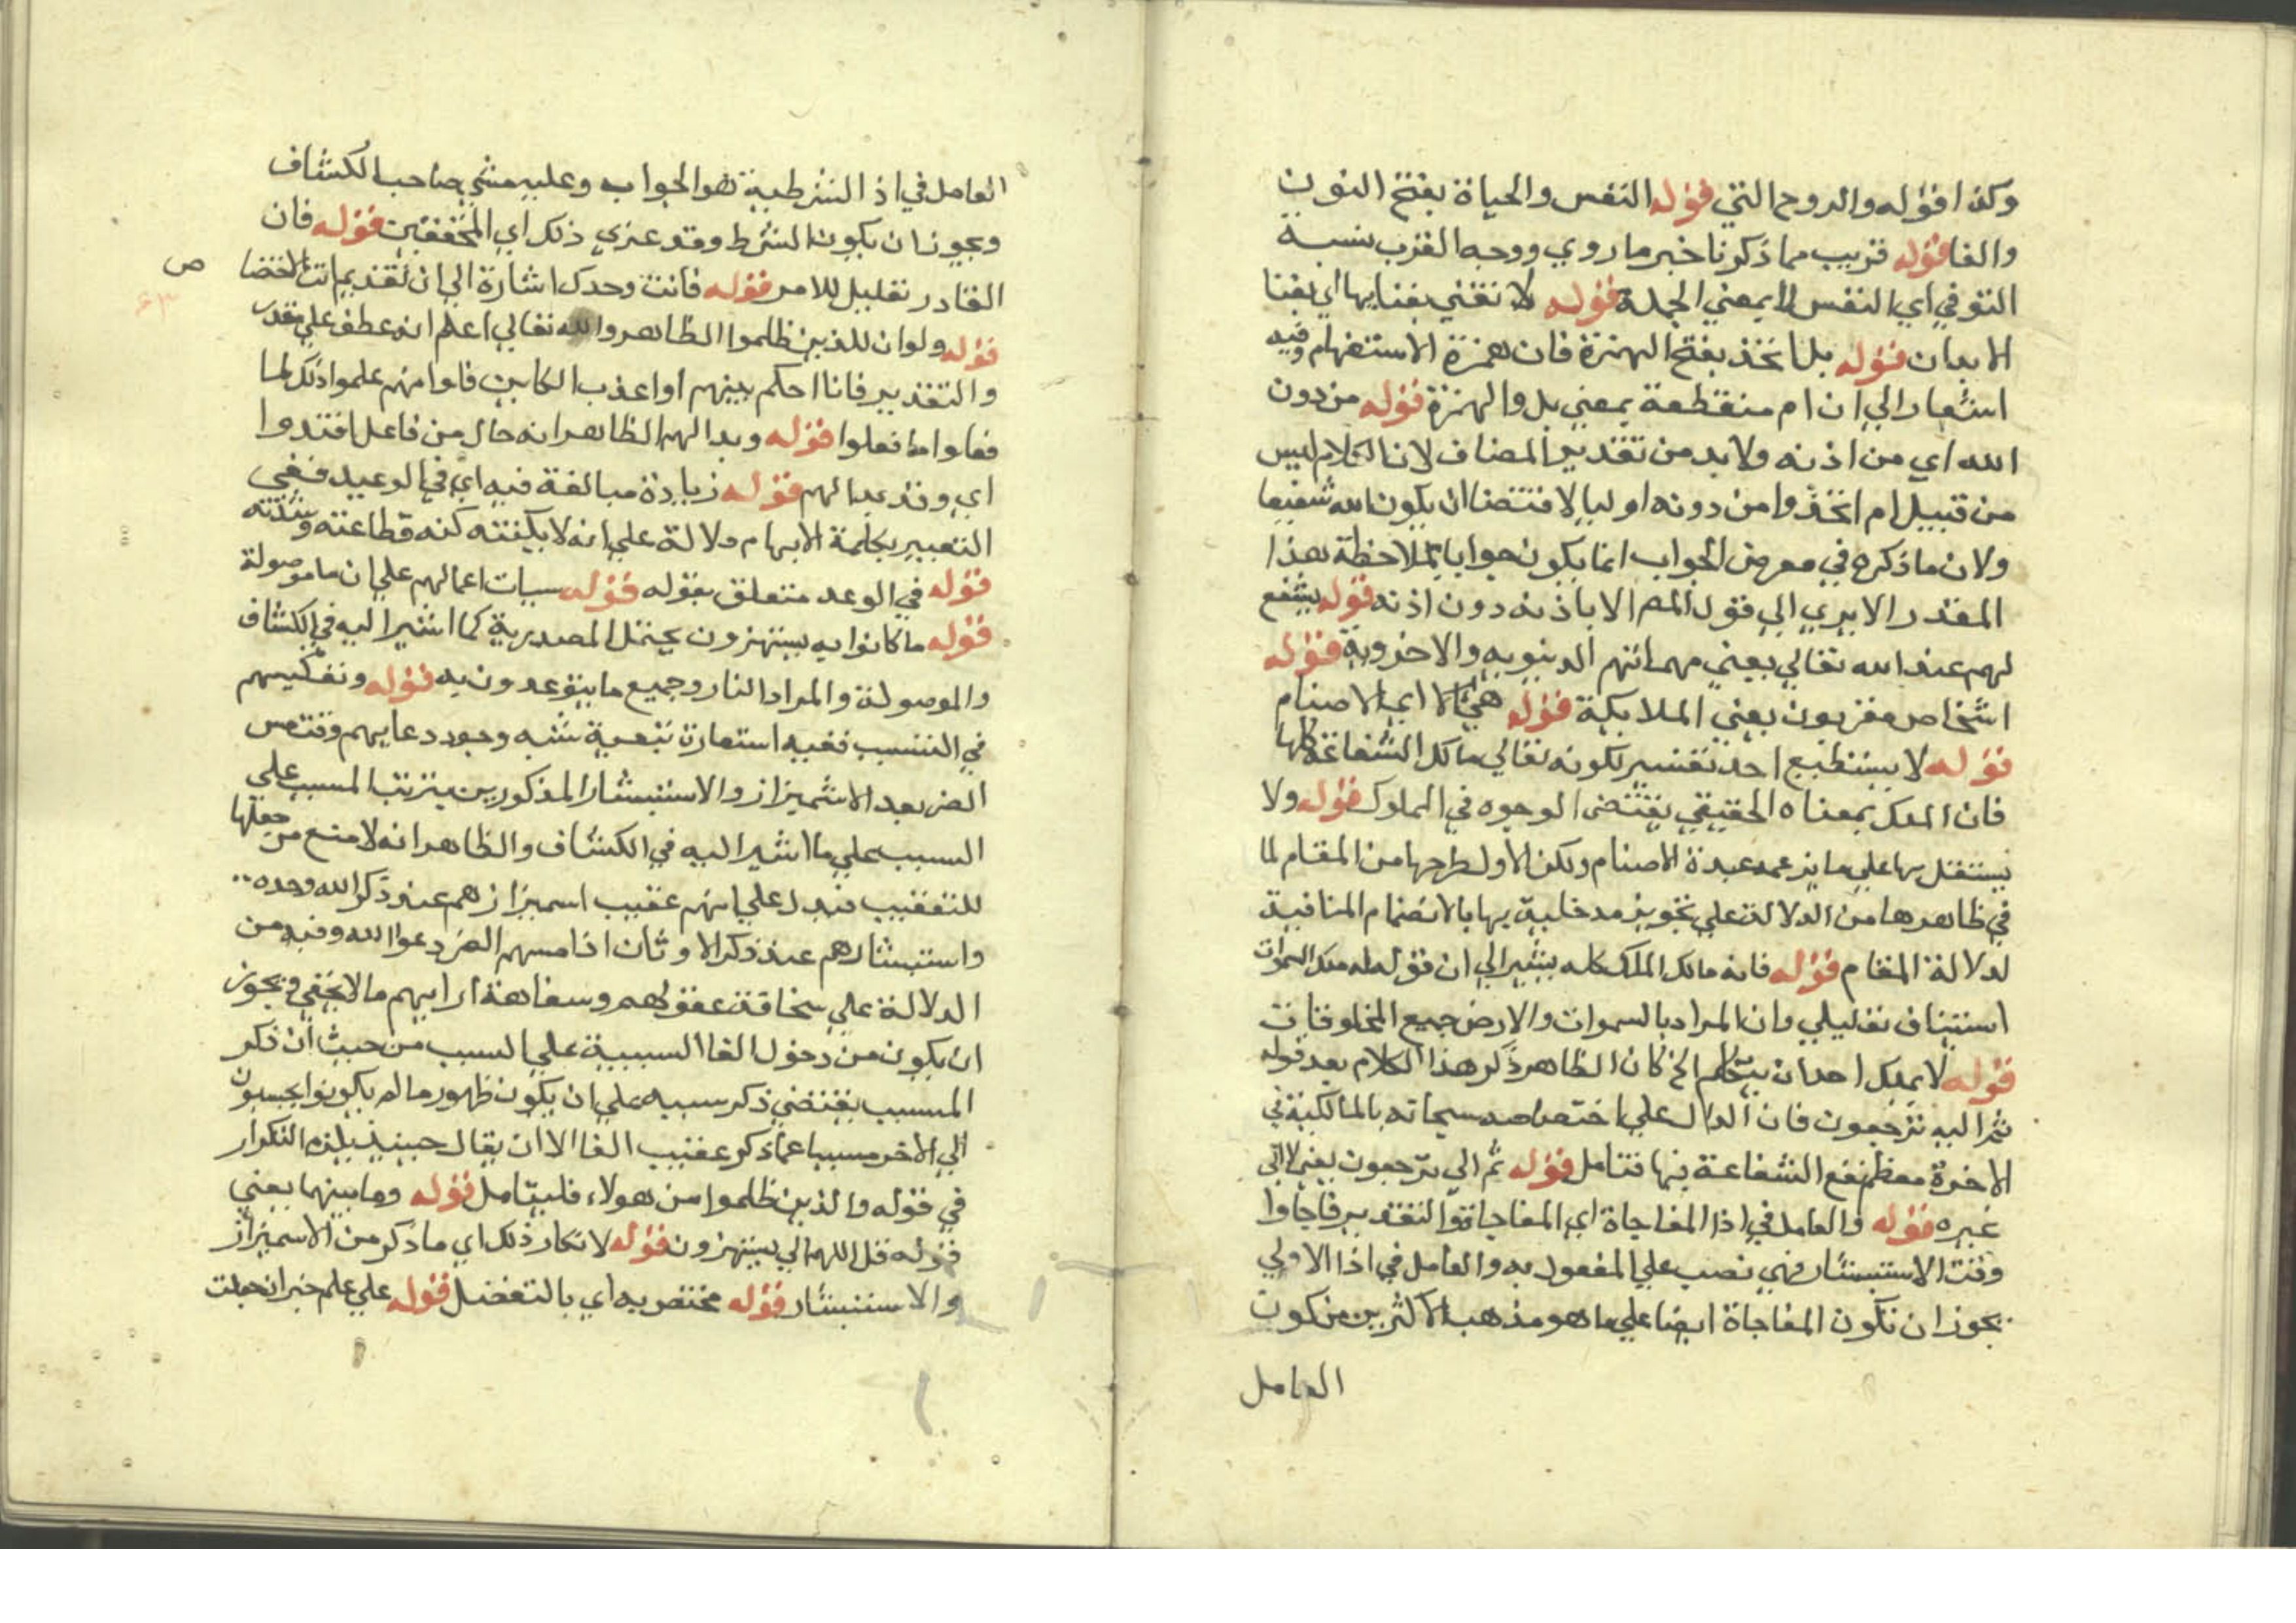 وكذا قوله والروح التي قوله النفس والحياة بفتح النون
والفا قوله قريب مما ذكرنا خبر ما روي ووجه القرب نسبة
التوفي اي النفس لا بمعني الجملة قوله لا تفني بفنايها اي بفنا
الابدان قوله بل اتخذ بفتح الهمزة فان همزة الاستفهام وفيه
اشعار الي ان ام منقطعة بمعني بل والهمزة قوله من دون
الله اي من اذنه ولا بد من تقدير المضاف لان الكلام ليس
من قبيل ام اتخذوا من دونه اوليا لاقتضا ان يكون الله شفيعا
ولان ما ذكره في معرض الجواب انما يكون جوابا بملاحظة هذا
المقدر الا يري الي قول المص الا باذنه دون اذنه قوله يشفع
لهم عند الله تعالي يعني مهماتهم الدنيوية والاخروية قوله
اشخاص مقربون يعني الملايكة قوله هي الا اي الاصنام
قوله لا يستطيع احد تفسير لكونه تعالي مالك الشفاعة كلها
فان الملك بمعناه الحقيقي يقتضي الوجوه في المملوك قوله ولا
يستقل بها علي ما يزعمه عبدة الاصنام ولكن الاولي طرحها من المقام لما
في ظاهرها من الدلالة علي تجويز مدخلية بها بالانضمام المنافية
لدلالة المقام قوله فانه مالك الملك كله يشير الي ان قوله له ملك السموات
استيناف تعليلي وان المراد بالسموات والارض جميع المخلوقات
قوله لا يملك احد ان يتكلم الخ كان الظاهر ذكر هذا الكلام بعد قوله
ثم اليه ترجعون فان الدال علي اختصاصه سبحانه بالمالكية في
الاخرة معظم نفع الشفاعة فيها فتامل قوله ثم الي ترجعون يعني لا الي
غيره قوله والعامل في اذا المفاجاة اي المفاجاة والتقدير فاجاوا
وقت الاستبشار فهي نصب علي المفعول به والعامل في اذا الاولي
يجوز ان تكون المفاجاة ايضا علي ما هو مذهب الاكثرين من كون
العامل
العامل في اذ الشرطية هو الجواب وعليه مشي صاحب الكشاف
ويجوز ان يكون الشرط وقد عزي ذلك اي المحققين قوله فان
القادر تعليل للامر قوله فانت وحدك اشارة الي ان تقديم انت لاقتضا
ص
٤٣
قوله ولو ان للذين ظلموا الظاهر والله تعالي اعلم انه عطف علي مقدر
والتقدير فانا احكم بينهم اواعذب الكاين فلوا منهم علموا ذلك لما
فعلوا ما فعلوا قوله وبدا لهم الظاهر انه حال من فاعل افتدوا
اي وقد بدا لهم قوله زيادة مبالغة فيه اي في الوعيد ففي
التعبير بكلمة الابهام دلالة علي انه لا يكتنه كنه فظاعته وشدته
قوله في الوعد متعلق بقوله قوله سيات اعمالهم علي ان ما موصولة
قوله ما كانوا به يستهزون يحتمل المصدرية كما اشير اليه في الكشاف
والموصولة والمراد النار وجميع ما يتوعدون به قوله وتعكيسهم
في التسبب ففيه استعارة تبعية شبه وجود دعايهم وقت مس
الضر بعد الاشميزاز والاستبشار المذكورين بترتب المسبب علي
السبب علي ما اشير اليه في الكشاف والظاهر انه لا منع من جعلها
للتعقيب فيدل علي انهم عقيب اسميزازهم عند ذكر الله وحده
واستبشارهم عند ذكر الاوثان اذا مسهم الضر دعوا الله وفيه من
الدلالة علي سخافة عقولهم وسفاهة ارايهم ما لا يخفي ويجوز
ان يكون من دخول الفا السببية علي السبب من حيث ان ذكر
المسبب يقتضي ذكر سببه علي ان يكون ظهور ما لم يكونوا يحتسبون
الي الاخر مسببا عما ذكر عقيب الفا الا ان يقال حينيذ يلزم التكرار
في قوله والذين ظلموا من هولاء فليتامل قوله وما بينهما يعني
قوله قل اللهم الي يستهزون قوله لانكار ذلك اي ما ذكر من الاسميزاز
والاستبشار قوله مختص به اي بالتفضل قوله علي علم خبر ان جعلت